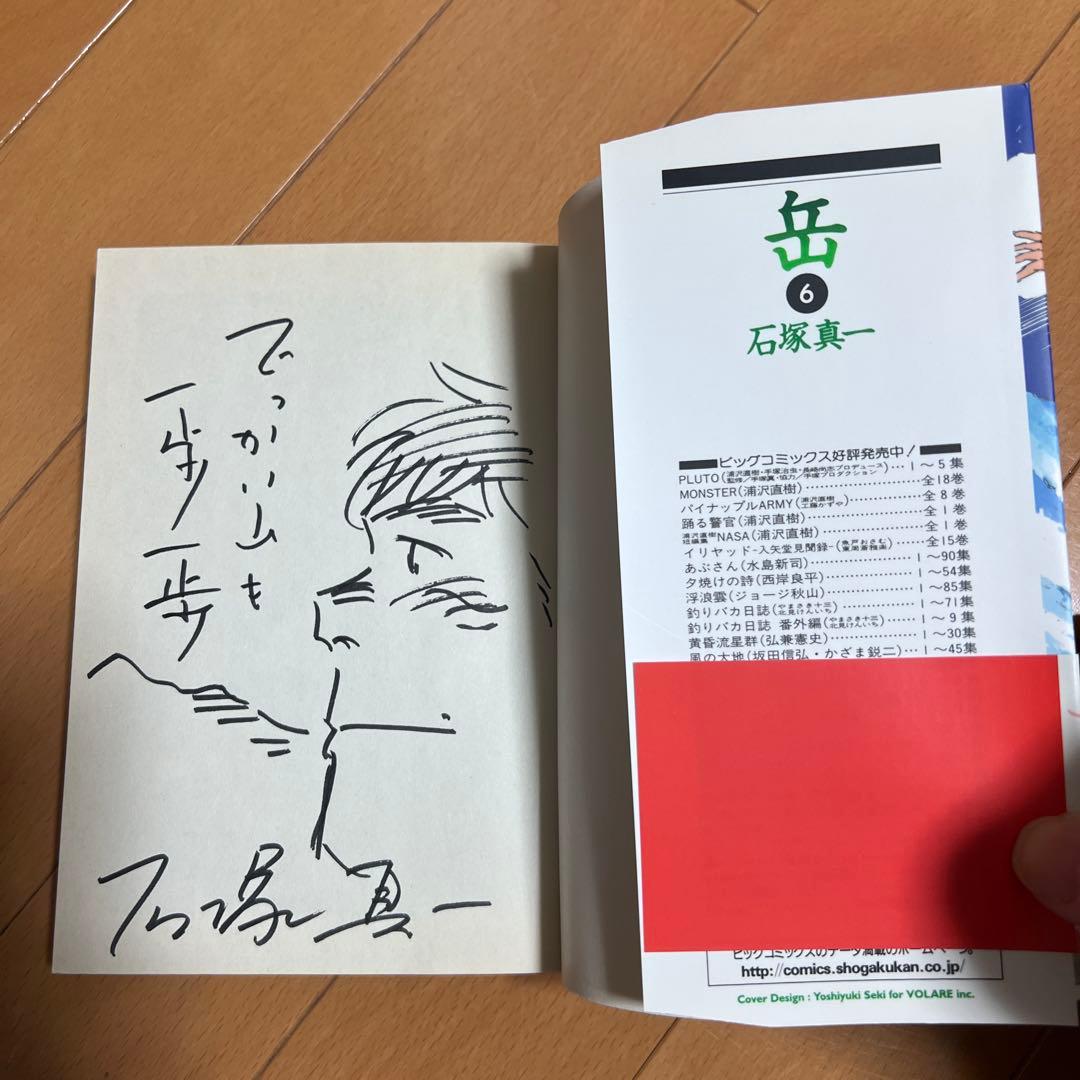 でっかい山も
一歩一歩
石塚真一
岳
6
石塚真一
ビッグコミックス好評発売中!
PLUTO(浦沢直樹・手塚治虫・長崎尚志プロデュース 監修/手塚眞・協力/手塚プロダクション)…1〜5集
MONSTER(浦沢直樹)…全18巻
パイナップルARMY(浦沢直樹 工藤かずや)…全8巻
踊る警官(浦沢直樹)…全1巻
浦沢直樹短編集NASA(浦沢直樹)…全1巻
イリヤッド-入矢堂見聞録-(魚戸おさむ 東周斎雅楽)…全15巻
あぶさん(水島新司)…1〜90集
夕焼けの詩(西岸良平)…1〜54集
浮浪雲(ジョージ秋山)…1〜85集
釣りバカ日誌(やまさき十三 北見けんいち)…1〜71集
釣りバカ日誌 番外編(やまさき十三 北見けんいち)…1〜9集
黄昏流星群(弘兼憲史)…1〜30集
風の大地(坂田信弘・かざま鋭二)…1〜45集
ビッグコミックスのデータ満載のホームページ。
http://comics.shogakukan.co.jp/
Cover Design : Yoshiyuki Seki for VOLARE inc.